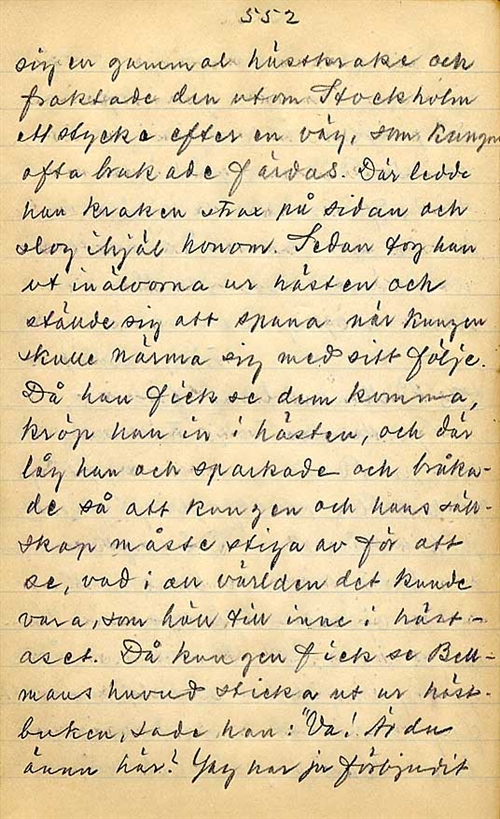 552
sig en gammal hästkrake och
fraktade den utom Stockholm
ett stycke efter en väg, som kungen
ofta brukade färdas. Där ledde
han kraken strax på sidan och
slog ihjäl honom. Sedan tog han
ut inälvorna ur hästen och
ställde sig att spana när kungen
skulle närma sig med sitt följe.
Då han fick se dem komma,
kröp han in i hästen, och där
låg han och sparkade och bråka-
de så att kungen och hans säll-
skap måste stiga av för att
se, vad i all världen det kunde
vara, som höll till inne i häst-
aset. Då kungen fick se Bell-
mans huvud sticka ut ur häst-
buken, sade han: "Va! Är du
ännu här? Jag har ju förbjudit